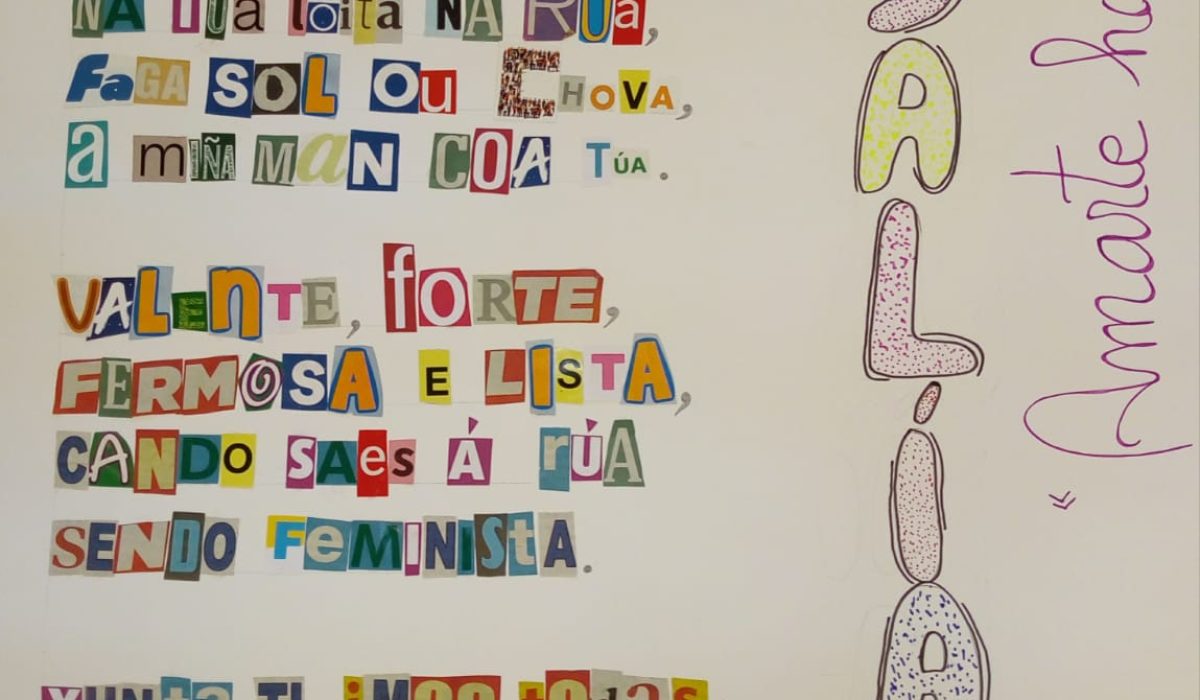 NA TÚa loita NA RÚa,
FaGA SOL OU CHOVA,
a mIÑA MaN COA TÚA.
VALENTE, fORTE,
FERMOSA E LISTA,
CANDO SAeS Á rÚA
SENDO FeMINIStA.
ALÍA
« Amarte